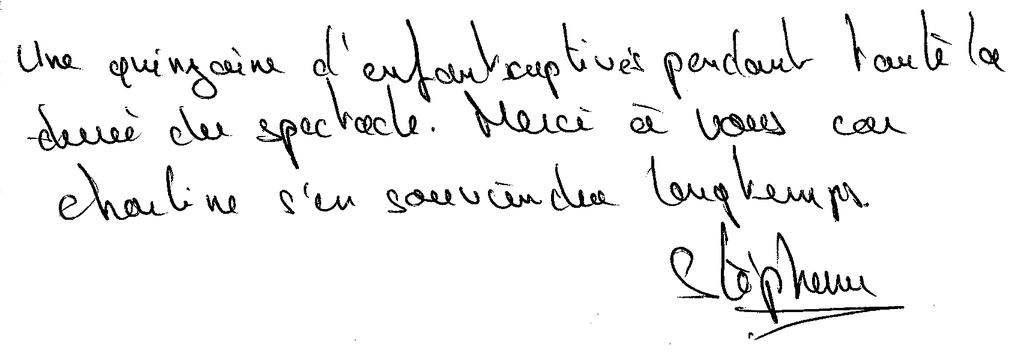 Une quinzaine d'enfants captivés pendant toute la
durée du spectacle. Merci à vous car
Charline s'en souviendra longtemps.
Stéphane